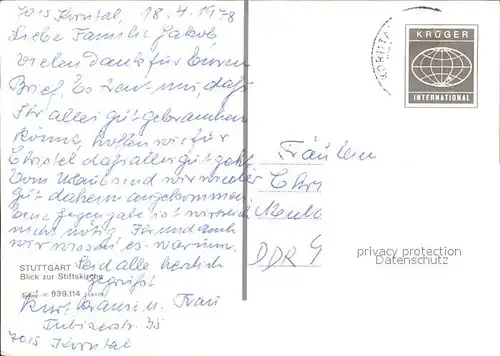 7015 Korntal, 18.4.1978
Liebe Familie Jakob
vielen Dank für Euren
Brief. Es freut uns, daß
Ihr alles gut gebrauchen
könnt, hoffen wir für
Christel daß alles gut geht.
Vom Urlaub sind wir wieder
gut daheim angekommen.
Eine Gegengabe ist wirklich
nicht nötig. Ihr und auch
wir wissen es warum.
Seid alle herzlich
gegrüßt
Kurt u. Frau
35
7015 Korntal
STUTTGART
Blick zur Stiftskirche
939.114
KORNTAL
KRÜGER
INTERNATIONAL
Fräulein
Chri
DDR 9
privacy protection
Datenschutz